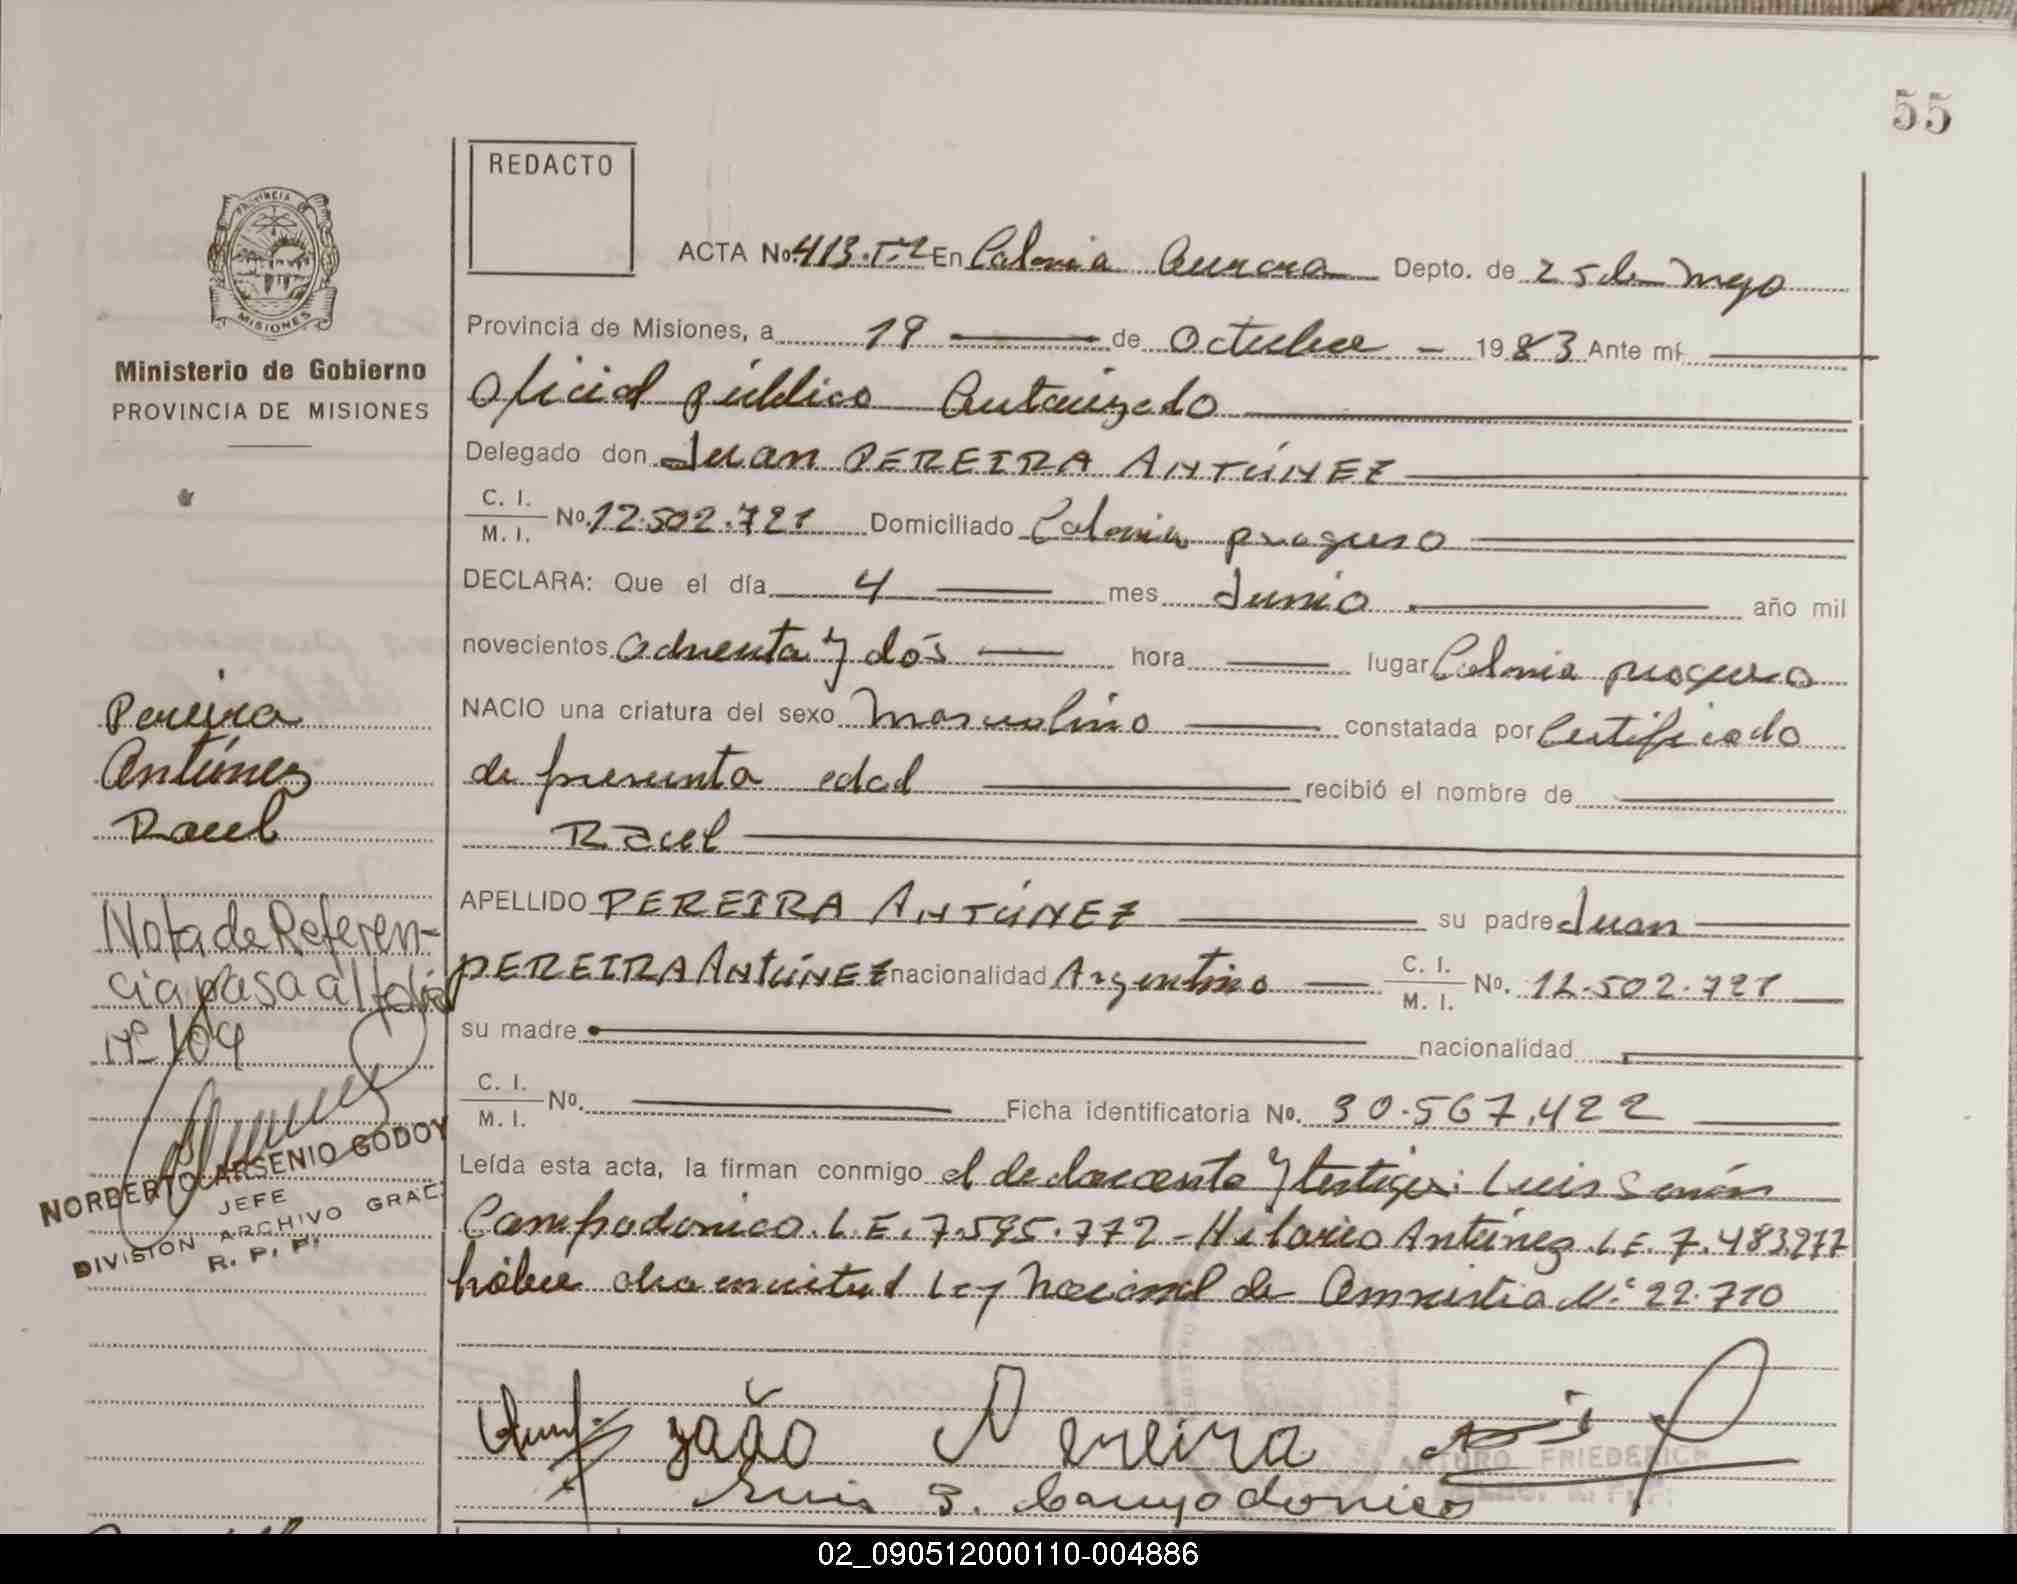 55
REDACTO
PROVINCIA
MISIONES
Ministerio de Gobierno
PROVINCIA DE MISIONES
ACTA No. 413.Tº2 En Colonia Aurora Depto. de 25 de Mayo
Provincia de Misiones, a 19 de Octubre 1983 Ante mí
Oficial público Autorizado
Delegado don Juan PEREIRA ANTÚNEZ
C. I. / M. I. No. 12.502.721 Domiciliado Colonia progreso
DECLARA: Que el día 4 mes Junio año mil
novecientos ochenta y dós hora lugar Colonia progreso
NACIO una criatura del sexo Masculino constatada por Certificado
de presunta edad recibió el nombre de
Raul
APELLIDO PEREIRA ANTÚNEZ su padre Juan
PEREIRA ANTÚNEZ nacionalidad Argentino C. I. / M. I. No. 12.502.721
su madre nacionalidad
C. I. / M. I. No. Ficha identificatoria No. 30.567.422
Leída esta acta, la firman conmigo el declarante y testigos: Luis Senón
Campodonico. L.E. 7.595.772 - Hilario Antúnez L.E. 7.483.277
Ley Nacional de Amnistia N.º 22.710
João Pereira
Luis S. Campodonico
ARTURO FRIEDERICH
Pereira
Antúnez
Raul
Nota de Referen-
cia pasa al folio
Nº 109
NORBERTO ARSENIO GODOY
JEFE
DIVISION ARCHIVO GRAL.
R. P. P.
02_090512000110-004886